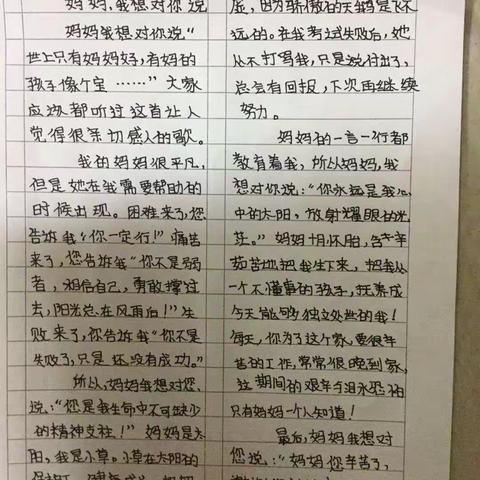 妈妈,我想对你说
妈妈我想对你说“
世上只有妈妈好,有妈的
孩子像个宝……”大家
应该都听过这首让人
觉得很亲切感人的歌。
我的妈妈很平凡,
但是她在我需要帮助的
时候出现。困难来了,您
告诉我“你一定行!”痛苦
来了,您告诉我“你不是弱
者,相信自己,勇敢撑过
去,阳光总在风雨后!”失
败来了,你告诉我“你不是
失败了,只是还没有成功。”
所以,妈妈我想对您
说:“您是我生命中不可缺少
的精神支柱!”妈妈是太
阳,我是小草。小草在太阳的
因为骄傲的天鹅是飞不
远的。在我考试失败后,她
从不打骂我,只是说付出了,
总会有回报,下次再继续
努力。
妈妈的一言一行都
教育着我,所以妈妈,我
想对你说:“你永远是我心
中的太阳,放射耀眼的光
芒。”妈妈十月怀胎,含辛
茹苦地把我生下来,把我从
一个不懂事的孩子,抚养成
今天能够独立处世的我!
每天,你为了这个家,要很辛
苦的工作,常常很晚到家,
这期间的艰辛与泪水恐怕
只有妈妈一个人知道!
最后,妈妈我想对
您说:“妈妈你辛苦了,